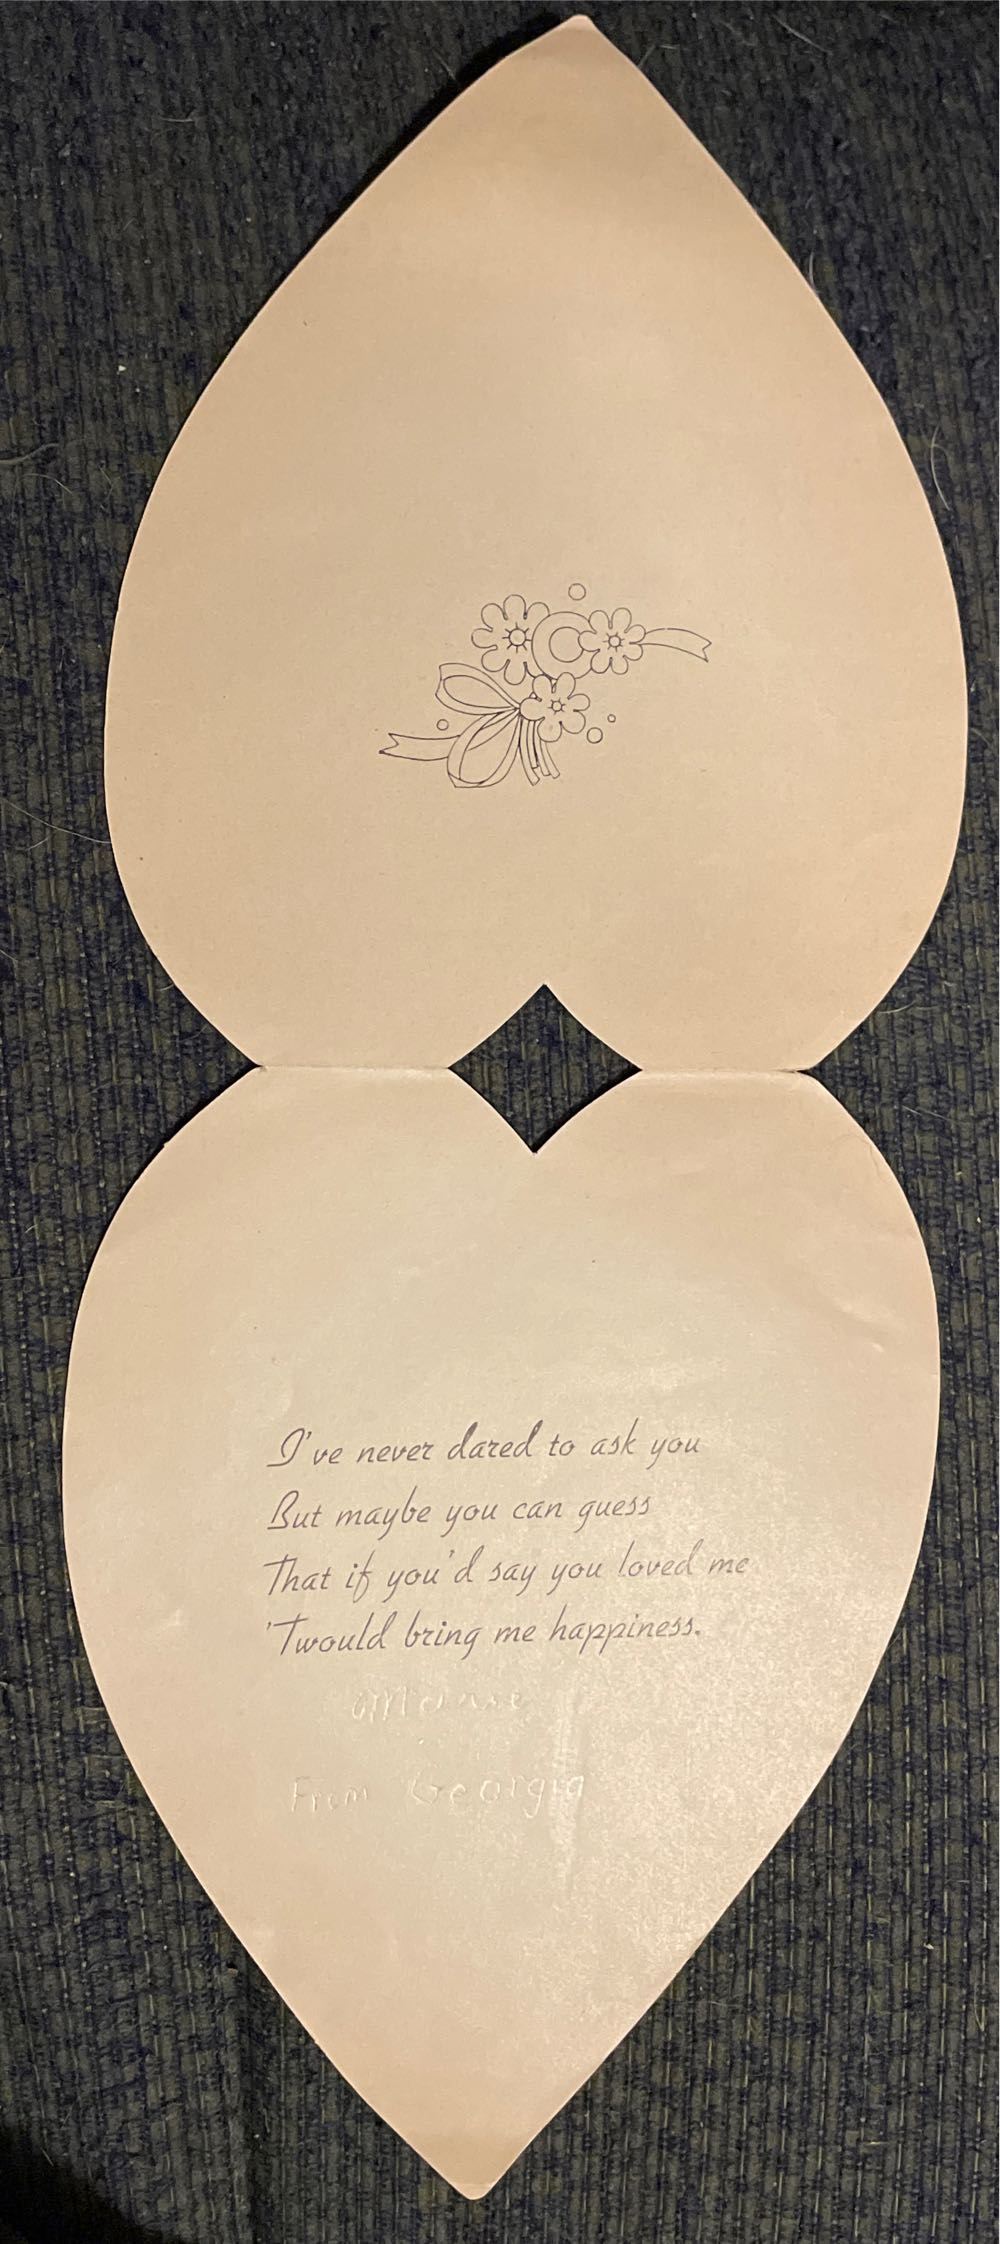 I've never dared to ask you
But maybe you can guess
That if you'd say you loved me
'Twould bring me happiness.
From Georgia